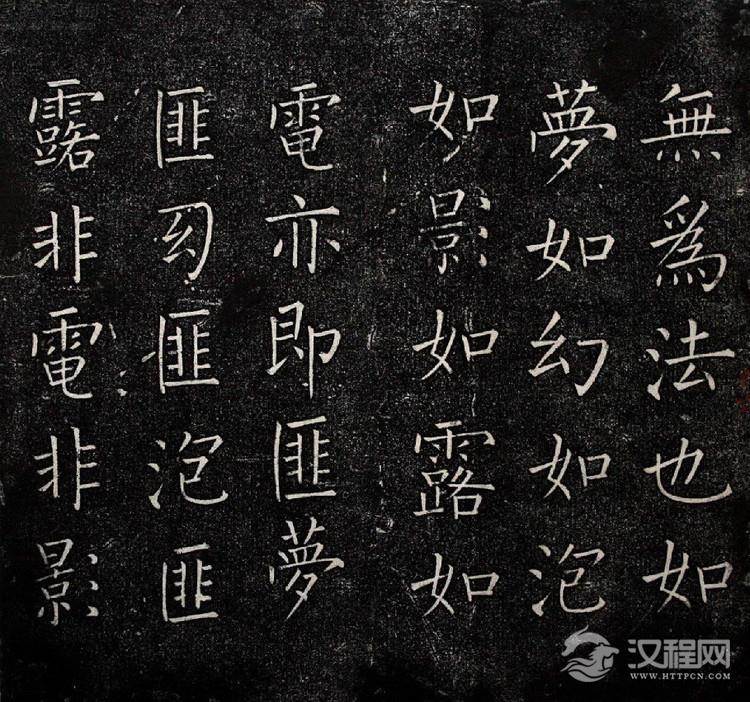 無爲法也如
夢如幻如泡
如影如露如
電亦即匪夢
匪幻匪泡匪
露非電非影
汉程网
WWW.HTTPCN.COM